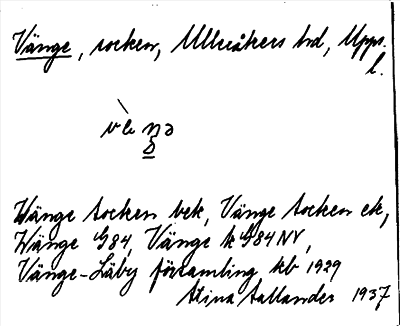 Vänge, socken, Ulleråkers hd, Upps.
l.
Wänge socken bek, Vänge socken ek,
Wänge G84, Vänge k G84NV,
Vänge-Läby församling kb 1929
Stina Sallander 1937